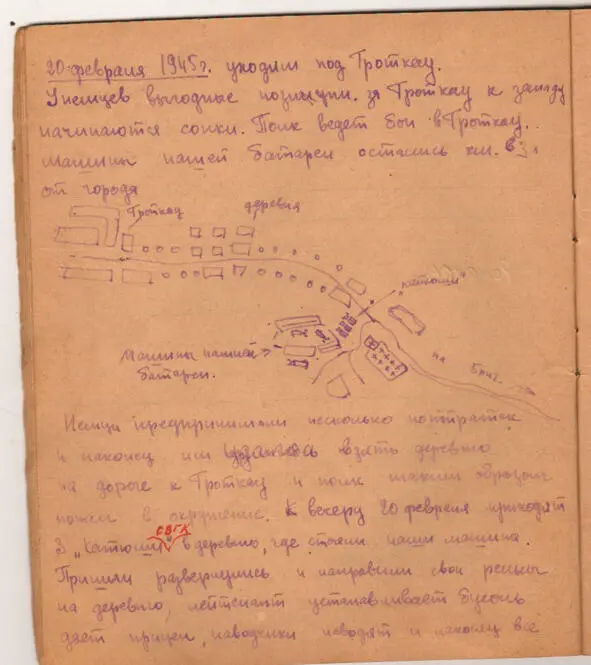 20 февраля 1945 г. уходим под Гроткау.
У немцев выгодные позиции. За Гроткау к западу
начинаются сопки. Полк ведет бои в Гроткау.
Машины нашей батареи остались км. в 3х
от города
Гроткау
деревня
"катюши"
Машины нашей
батареи.
на Бриг.
Немцы предпринимали несколько контратак
и наконец им удалось взять деревню
на дороге к Гроткау и полк таким образом
попал в окружение. К вечеру 20 февраля приходят
СВГК
3 "Катюши" в деревню, где стояли наши машины.
Пришли развернулись и направили свои рельсы
на деревню, лейтенант устанавливает буссоль
дает прицел, наводчики наводят и наконец всё